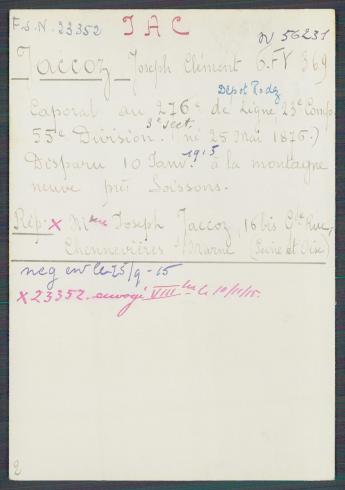 F.S.N. 23352 JAC N 56231
Jaccoz Joseph Clément 6.FV 369
Dépot Rodez
Caporal au 276e de Ligne 23e Comp.
3e sect.
55e Division. (né 25 Mai 1876.)
Disparu 10 Janv. 1915 à la montagne
neuve près Soissons.
Rép. x Mme Joseph Jaccoz, 16 bis Gde Rue,
Chennevières s/Marne (Seine et Oise)
neg env le 25/9-15
x 23352 envoyé VIII le 10/11/15.
2